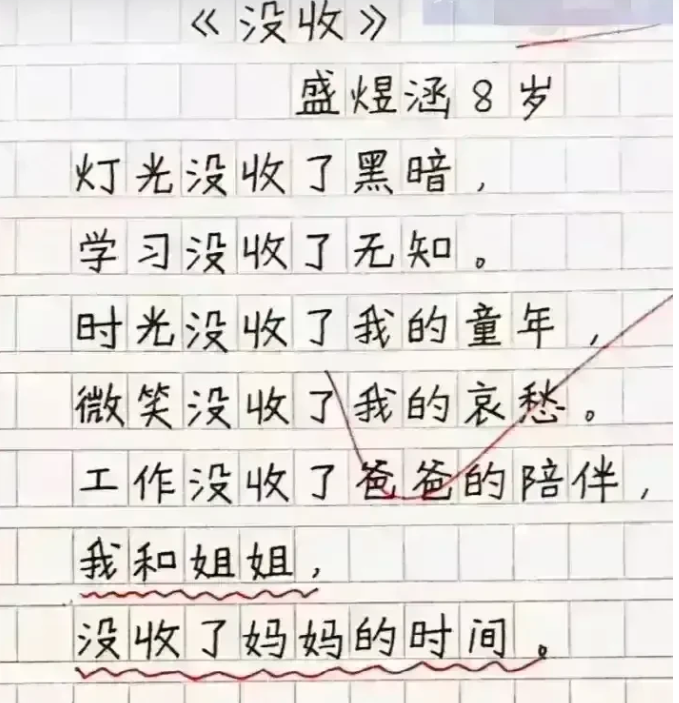 《没收》
盛煜涵8岁
灯光没收了黑暗，
学习没收了无知。
时光没收了我的童年，
微笑没收了我的哀愁。
工作没收了爸爸的陪伴，
我和姐姐，
没收了妈妈的时间。